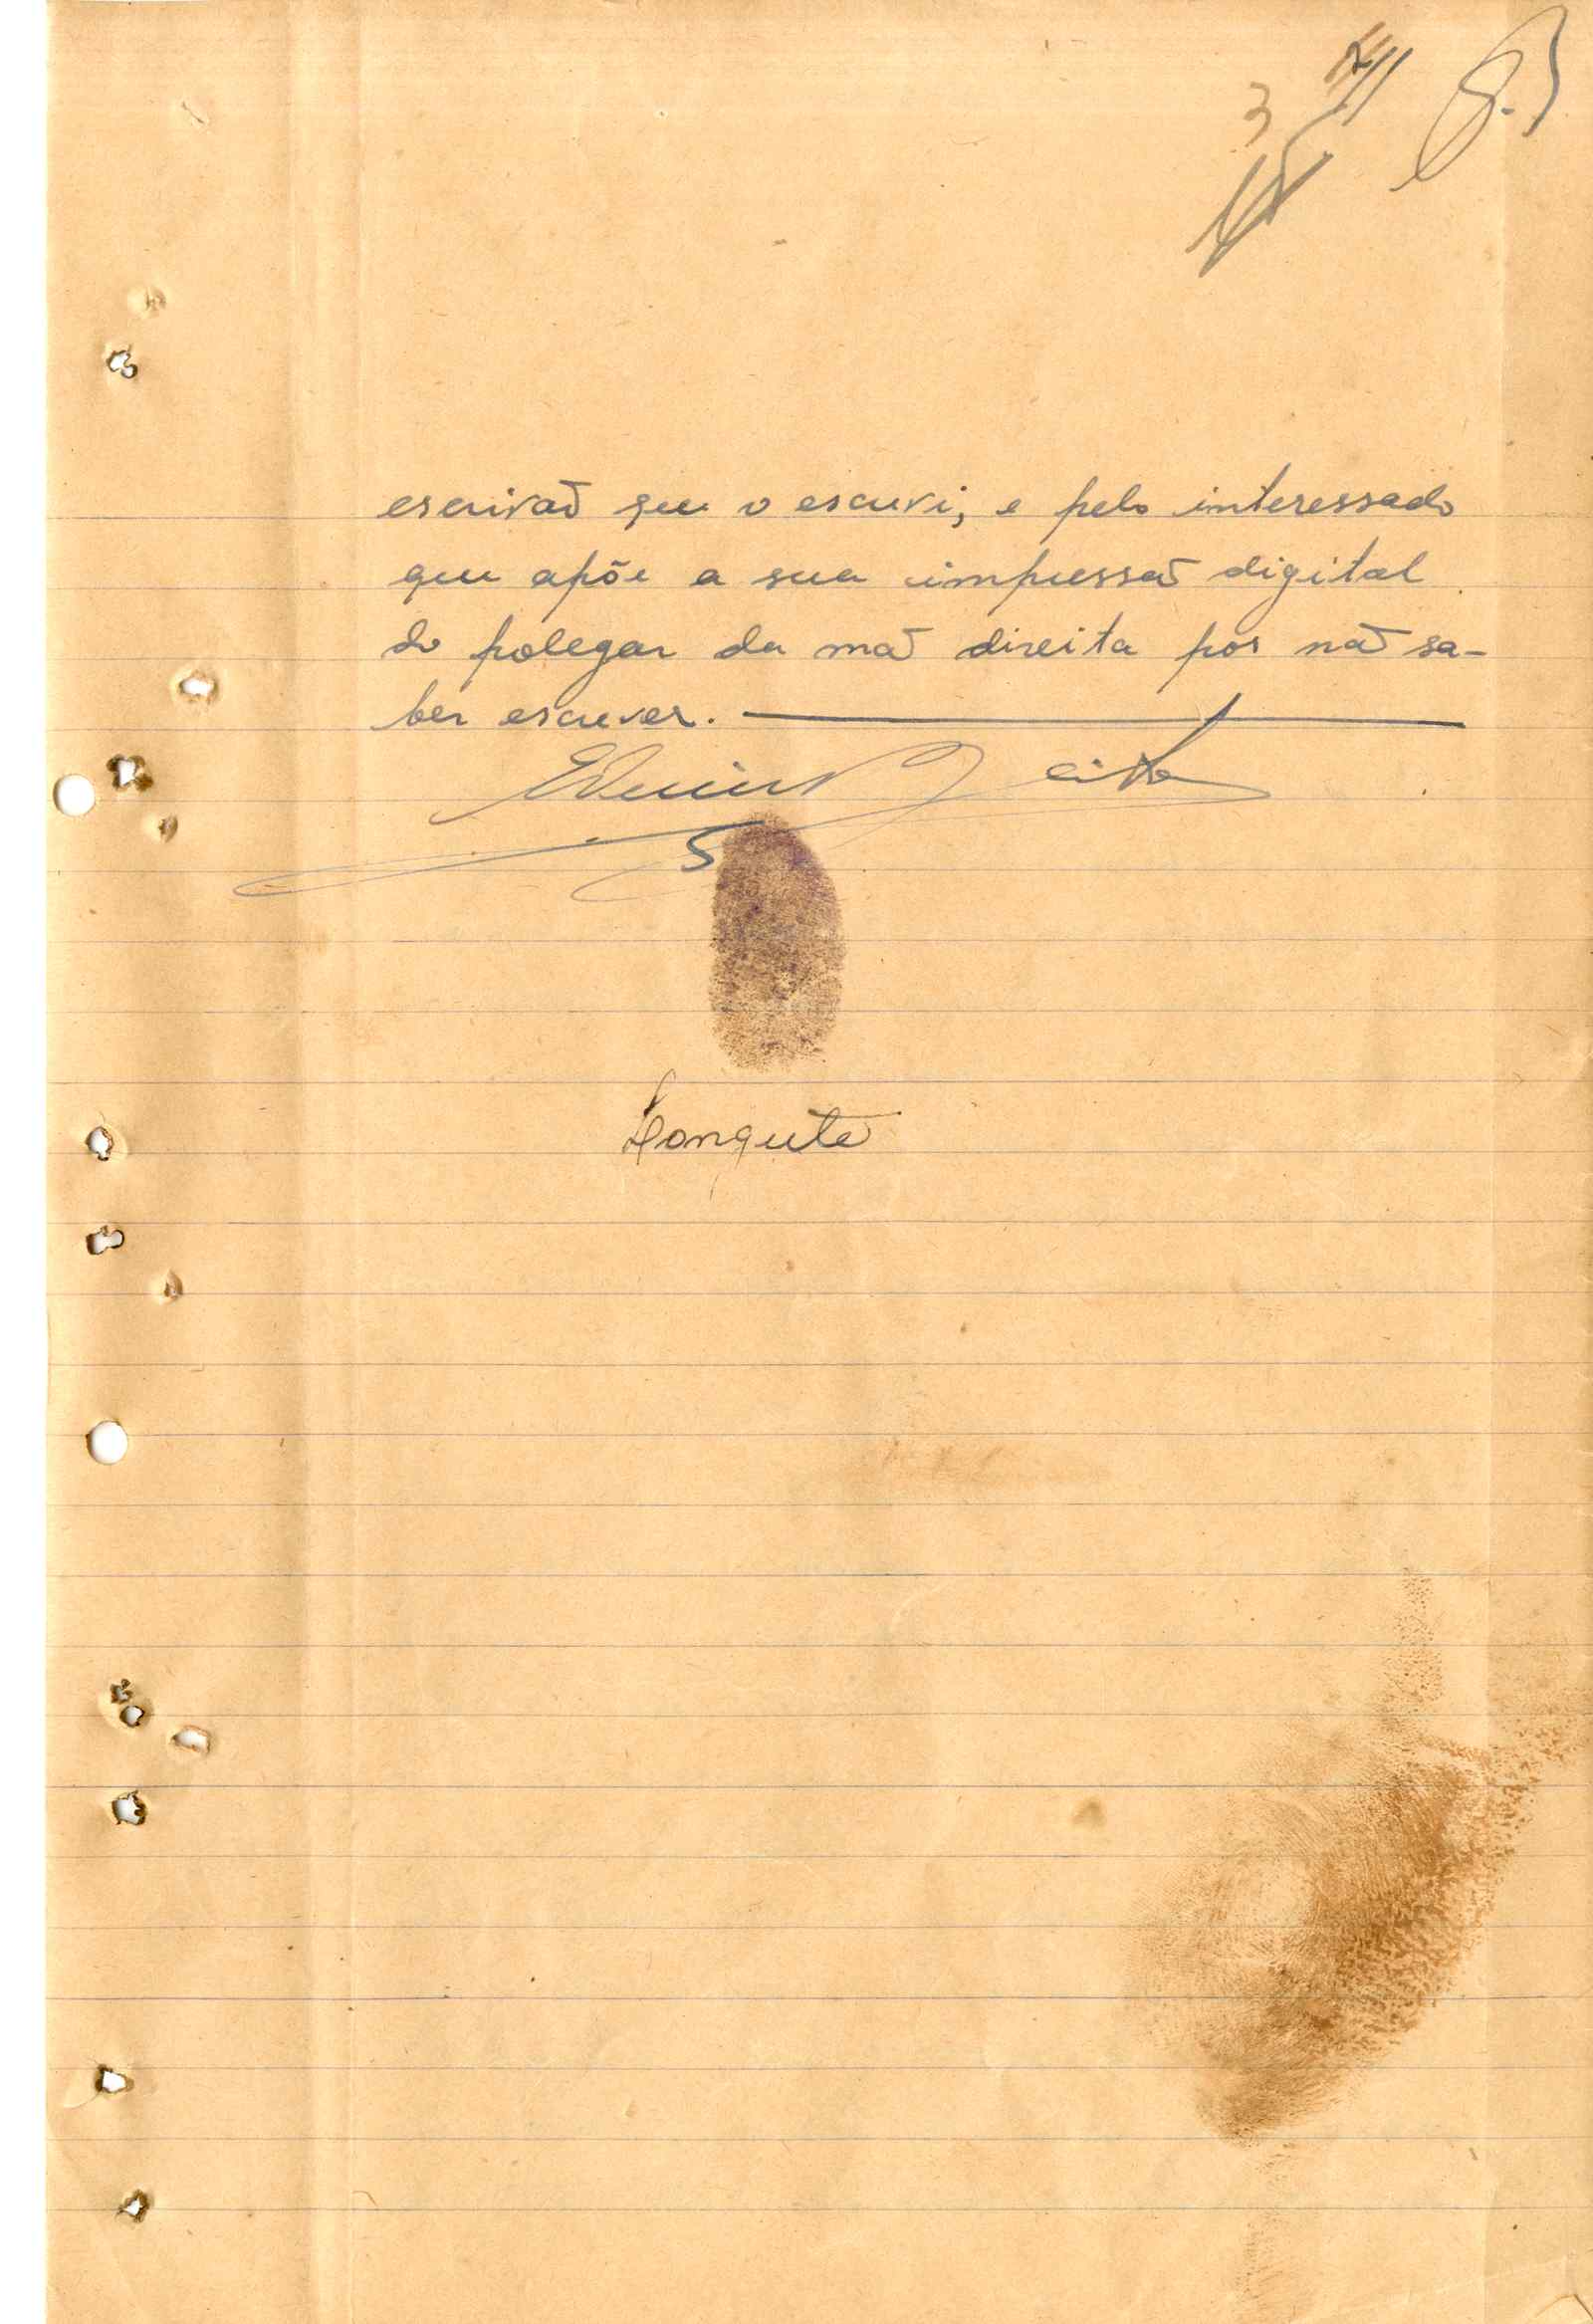 3
escrivão que o escrevi, e pelo interessado
que apõe a sua impressão digital
do polegar da mão direita por não sa-
ber escrever.